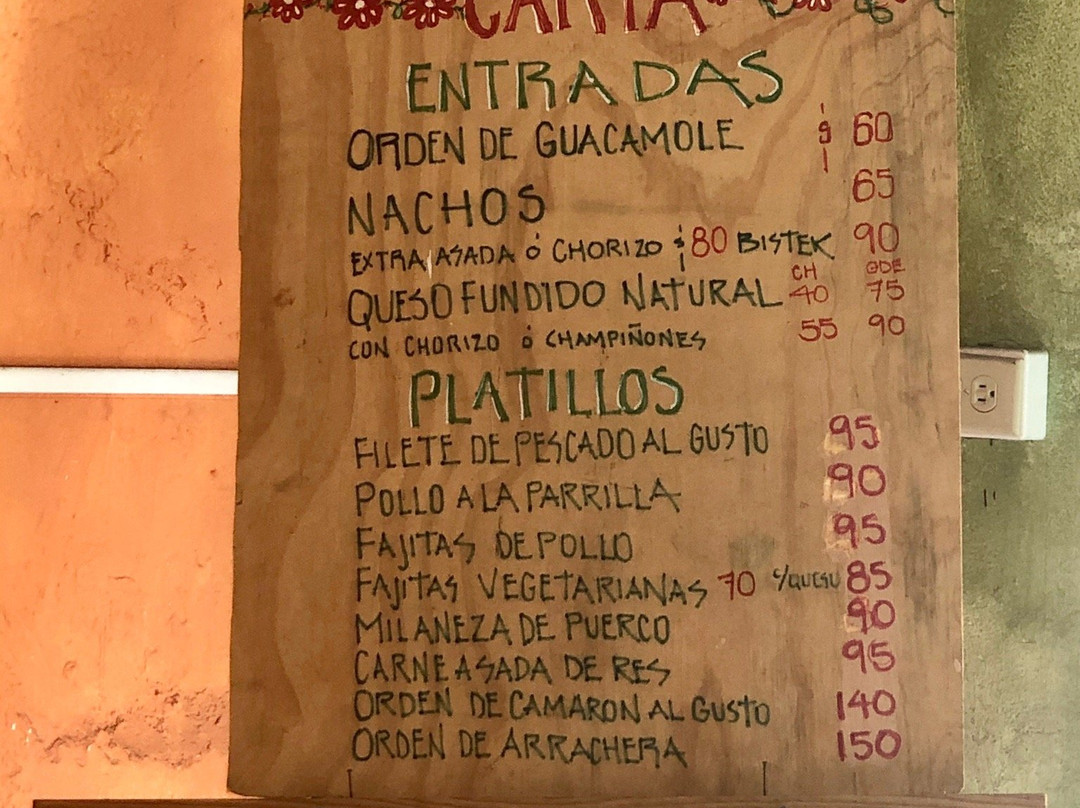 CARTA
ENTRADAS
ORDEN DE GUACAMOLE $ 60
NACHOS 65
EXTRA ASADA ó CHORIZO $ 80 BISTEK 90
CH GDE
QUESO FUNDIDO NATURAL 40 75
CON CHORIZO ó CHAMPIÑONES 55 90
PLATILLOS
FILETE DE PESCADO AL GUSTO 95
POLLO A LA PARRILLA 90
FAJITAS DE POLLO 95
FAJITAS VEGETARIANAS 70 c/QUESO 85
MILANEZA DE PUERCO 90
CARNE ASADA DE RES 95
ORDEN DE CAMARON AL GUSTO 140
ORDEN DE ARRACHERA 150